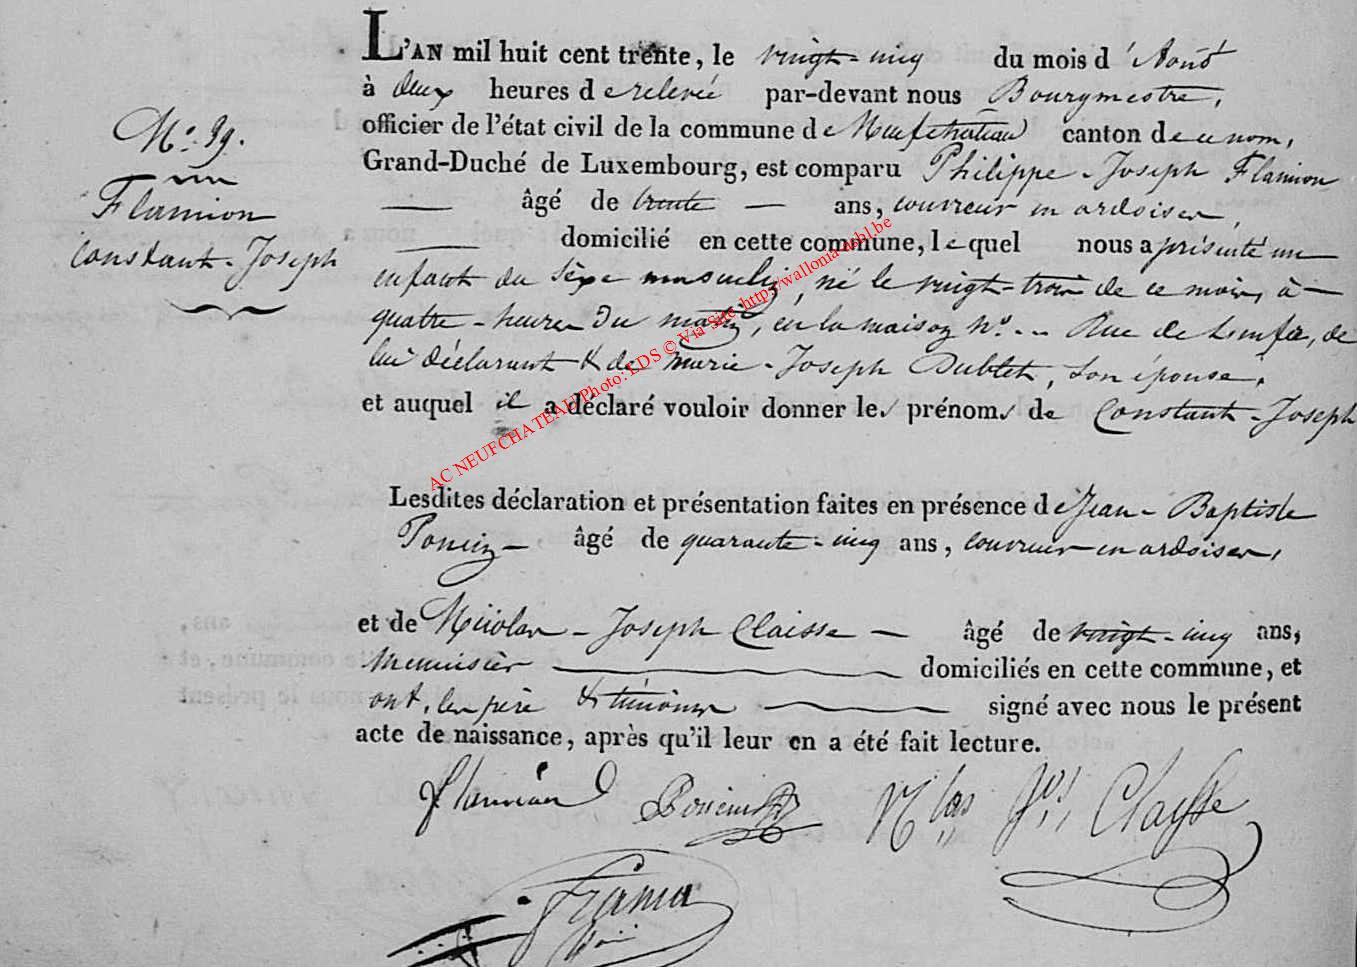 L'AN mil huit cent trente, le vingt-cinq du mois d'Août
à deux heures de relevée par-devant nous Bourgmestre,
officier de l'état civil de la commune de Neufchateau canton de ce nom,
Grand-Duché de Luxembourg, est comparu Philippe-Joseph Flamion
— âgé de trente — ans, couvreur en ardoises,
— domicilié en cette commune, lequel nous a présenté un
enfant du sexe masculin, né le vingt-trois de ce mois, à —
quatre-heures du matin, en la maison n°. -- Rue de , de
lui déclarant & de marie-Joseph Dublet, son épouse,
et auquel il a déclaré vouloir donner les prénoms de Constant-Joseph
N°. 39.
Flamion
Constant-Joseph
Lesdites déclaration et présentation faites en présence de Jean-Baptiste
Poncin — âgé de quarante-cinq ans, couvreur en ardoises,
et de Nicolas-Joseph Claisse — âgé de vingt-cinq ans,
menuisier — domiciliés en cette commune, et
ont, les père & témoins — signé avec nous le présent
acte de naissance, après qu'il leur en a été fait lecture.
Flamion Poncin Nlas Jph Claysse
AC NEUFCHATEAU Photo: EDS © Via Site http://wallonia-asbl.be